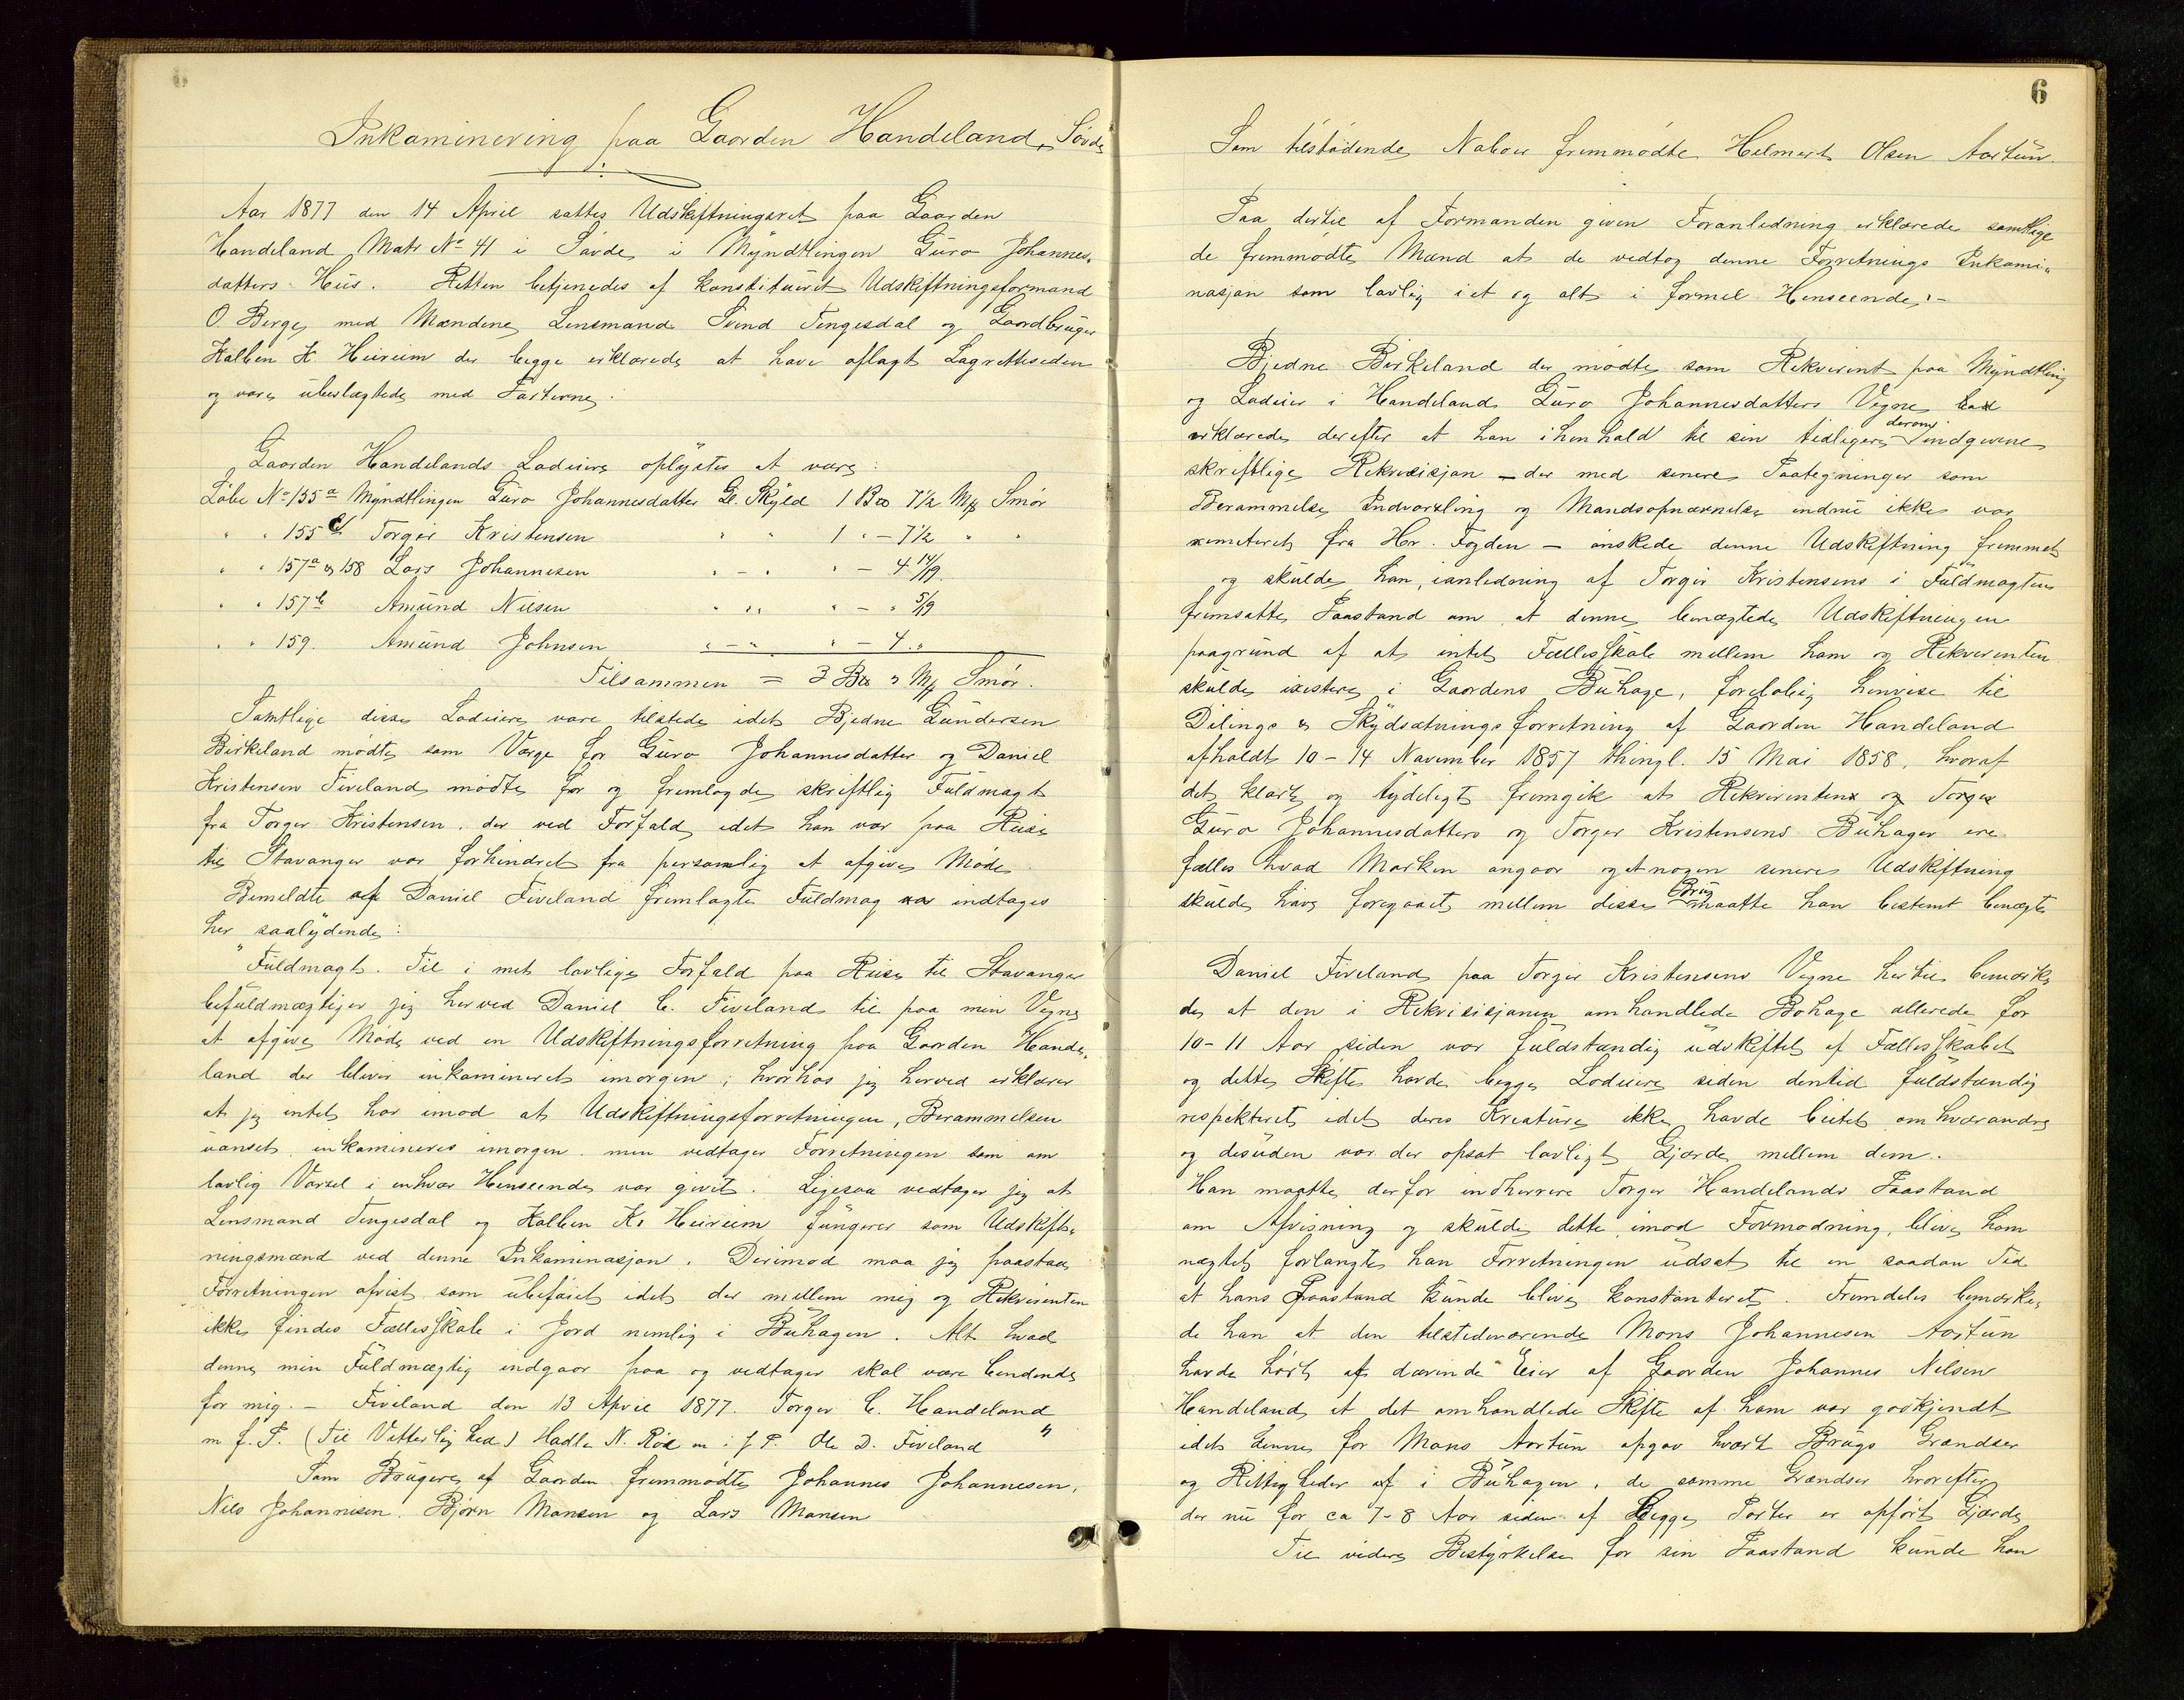 Inkaminering paa Gaarden Handeland, Søvde
Aar 1877 den 14 April sattes Udskiftningsret paa Gaarden
Handeland Matr No 41 i Søvde i Myndtlingen Guro Johannes-
datters Hus. Retten betjenedes af konstitueret Udskiftningsformand
O. Berge med Mændene Lensmand Svend Tengesdal og Gaardbruger
Kalben K. Heireim der begge erklærede at have aflagt Lagretteseden
og være ubeslægtede med Parterne.
Gaarden Handelands Loduiere oplystes at være:
Løbe No 155a Myndtlingen Guro Johannesdatter Gl. Skyld 1 7 1/2 Smør
" " 155 Torger Kristensen " " 1 " - 7 1/2 " "
" " 157a & 158 Lars Johannesen " - " " - 4 14/19.
" " 157b Amund Nilsen " " " - " 5/19
" " 159. Amund Johnsen " - " " - 4 "
Tilsammen = 3 " Smør.
Samtlige disse Loduiere vare tilstede idet Bjedne Gundersen
Birkeland mødte som Værge for Guro Johannesdatter og Daniel
Kristensen Fiveland mødte for og fremlagde skriftlig Fuldmagt
fra Torger Kristensen, der ved Forfald, idet han var paa Reise
til Stavanger var forhindret fra personlig at afgive Møde.
Bemeldte af Daniel Fiveland fremlagte Fuldmag indtages
her saalydende:
"Fuldmagt. Til i mit lovlige Forfald paa Reise til Stavanger
befuldmægtiger jeg herved Daniel C. Fiveland til paa min Vegne
at afgive Møde ved en Udskiftningsforretning paa Gaarden Hande-
land der bliver inkamineret imorgen; hvorhos jeg herved erklærer
at jeg intet har imod at Udskiftningsforretningen, Berammelsen
uanset, inkamineres imorgen, men vedtager Forretningen som om
lovlig Varsel i enhver Henseende var givet. Ligesaa vedtager jeg at
Lensmand Tengesdal og Kalben Kr Heireim fungerer som Udskift-
ningsmænd ved denne Inkaminasjon. Derimod maa jeg paastaa
Forretningen afvist som ubeføiet idet der mellem mig og Rekvirenten
ikke findes Fællesskab i Jord nemlig i Buhagen. Alt hvad
denne min Fuldmægtig indgaar paa og vedtager skal være bindende
for mig. - Fiveland den 13 April 1877. Torger C. Handeland
m. f. P. (Til Vitterlighed) Hadle N. Røe m i f P. Ole D. Fiveland "
Som Brugere af Gaarden fremmødte Johannes Johannesen,
Nils Johannesen, Bjørn Monsen og Lars Monsen
6
Som tilstødende Naboer fremmødte Helmert Olsen Aartun.
Paa dertil af Formanden given Foranledning erklærede samtlige
de fremmødte Mænd at de vedtog denne Forretnings Inkami-
nasjon som lovlig i et og alt i formel Henseende. -
Bjedne Birkeland der mødte som Rekvirent paa Myndtling
og Loduier i Handeland Guro Johannesdatters Vegne
erklærede derefter at han i henhold til sin tidligere derom indgivne
skriftlige Rekvisisjon - der med senere Paategninger som
Berammelse, Indvarsling og Mandsopnævnelse endnu ikke var
remiteret fra Hr. Fogden - ønskede denne Udskiftning fremmet
og skulde han, ianledning af Torger Kristensens i Fuldmagten
fremsatte Paastand om at denne benægtede Udskiftningen
paagrund af at intet Fællesskab mellem ham og Rekvirenten
skulde existere i Gaardens Buhage, foreløbig henvise til
Dilings & Skydsætningsforretning af Gaarden Handeland
afholdt 10 - 14 November 1857 thingl. 15 Mai 1858, hvoraf
det klart og tydeligt fremgik at Rekvirenten og Torger
Guro Johannesdatters og Torger Kristensens Buhager ere
fælles hvad Marken angaar og at nogen senere Udskiftning
skulde have foregaaet mellem disse Brug maatte han bestemt benægte
Daniel Fiveland paa Torger Kristensens Vegne hertil bemærke-
de at den i Rekvisisjonen omhandlede Bohage allerede for
10 - 11 Aar siden var fuldstændig udskiftet af Fællesskabet
og dette Skifte havde begge Loduiere siden dentid fuldstændig
respekteret idet deres Kreature ikke havde beitet om hverandre
og desuden var der opsat lovligt Gjærde mellem dem.
Han maatte derfor indherrere Torger Handelands Paastand
om Afvisning og skulde dette, imod Formodning, blive ham
nægtet forlangte han Forretningen udsat til en saadan Tid
at hans Paastand kunde blive konstanteret. Fremdeles bemærke-
de han at den tilstedeværende Mons Johannesen Aartun
havde hørt af daværende Eier af Gaarden Johannes Nilsen
Handeland, at det omhandlede Skifte af ham var godkjendt
idet denne for Mons Aartun opgav hvært Brugs Grændser
og Rettigheder af i Buhagen, de samme Grændser hvorefter
der nu for ca 7 - 8 Aar siden af Begge Parter er opført Gjærde
Til videre Bestyrkelse for sin Paastand kunde han